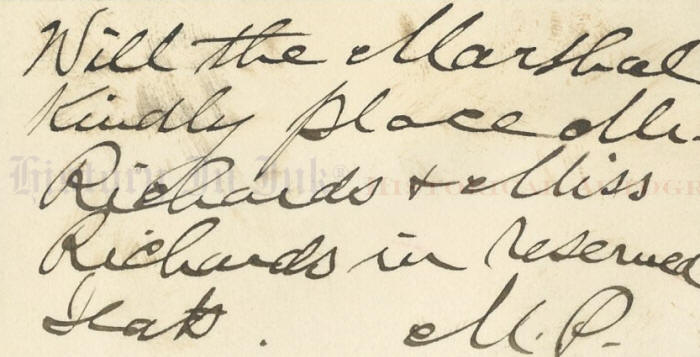 Will the Marshal
Kindly place Mr.
Richards & Miss
Richards in reserved
Seats.
M.P.
History In Ink®